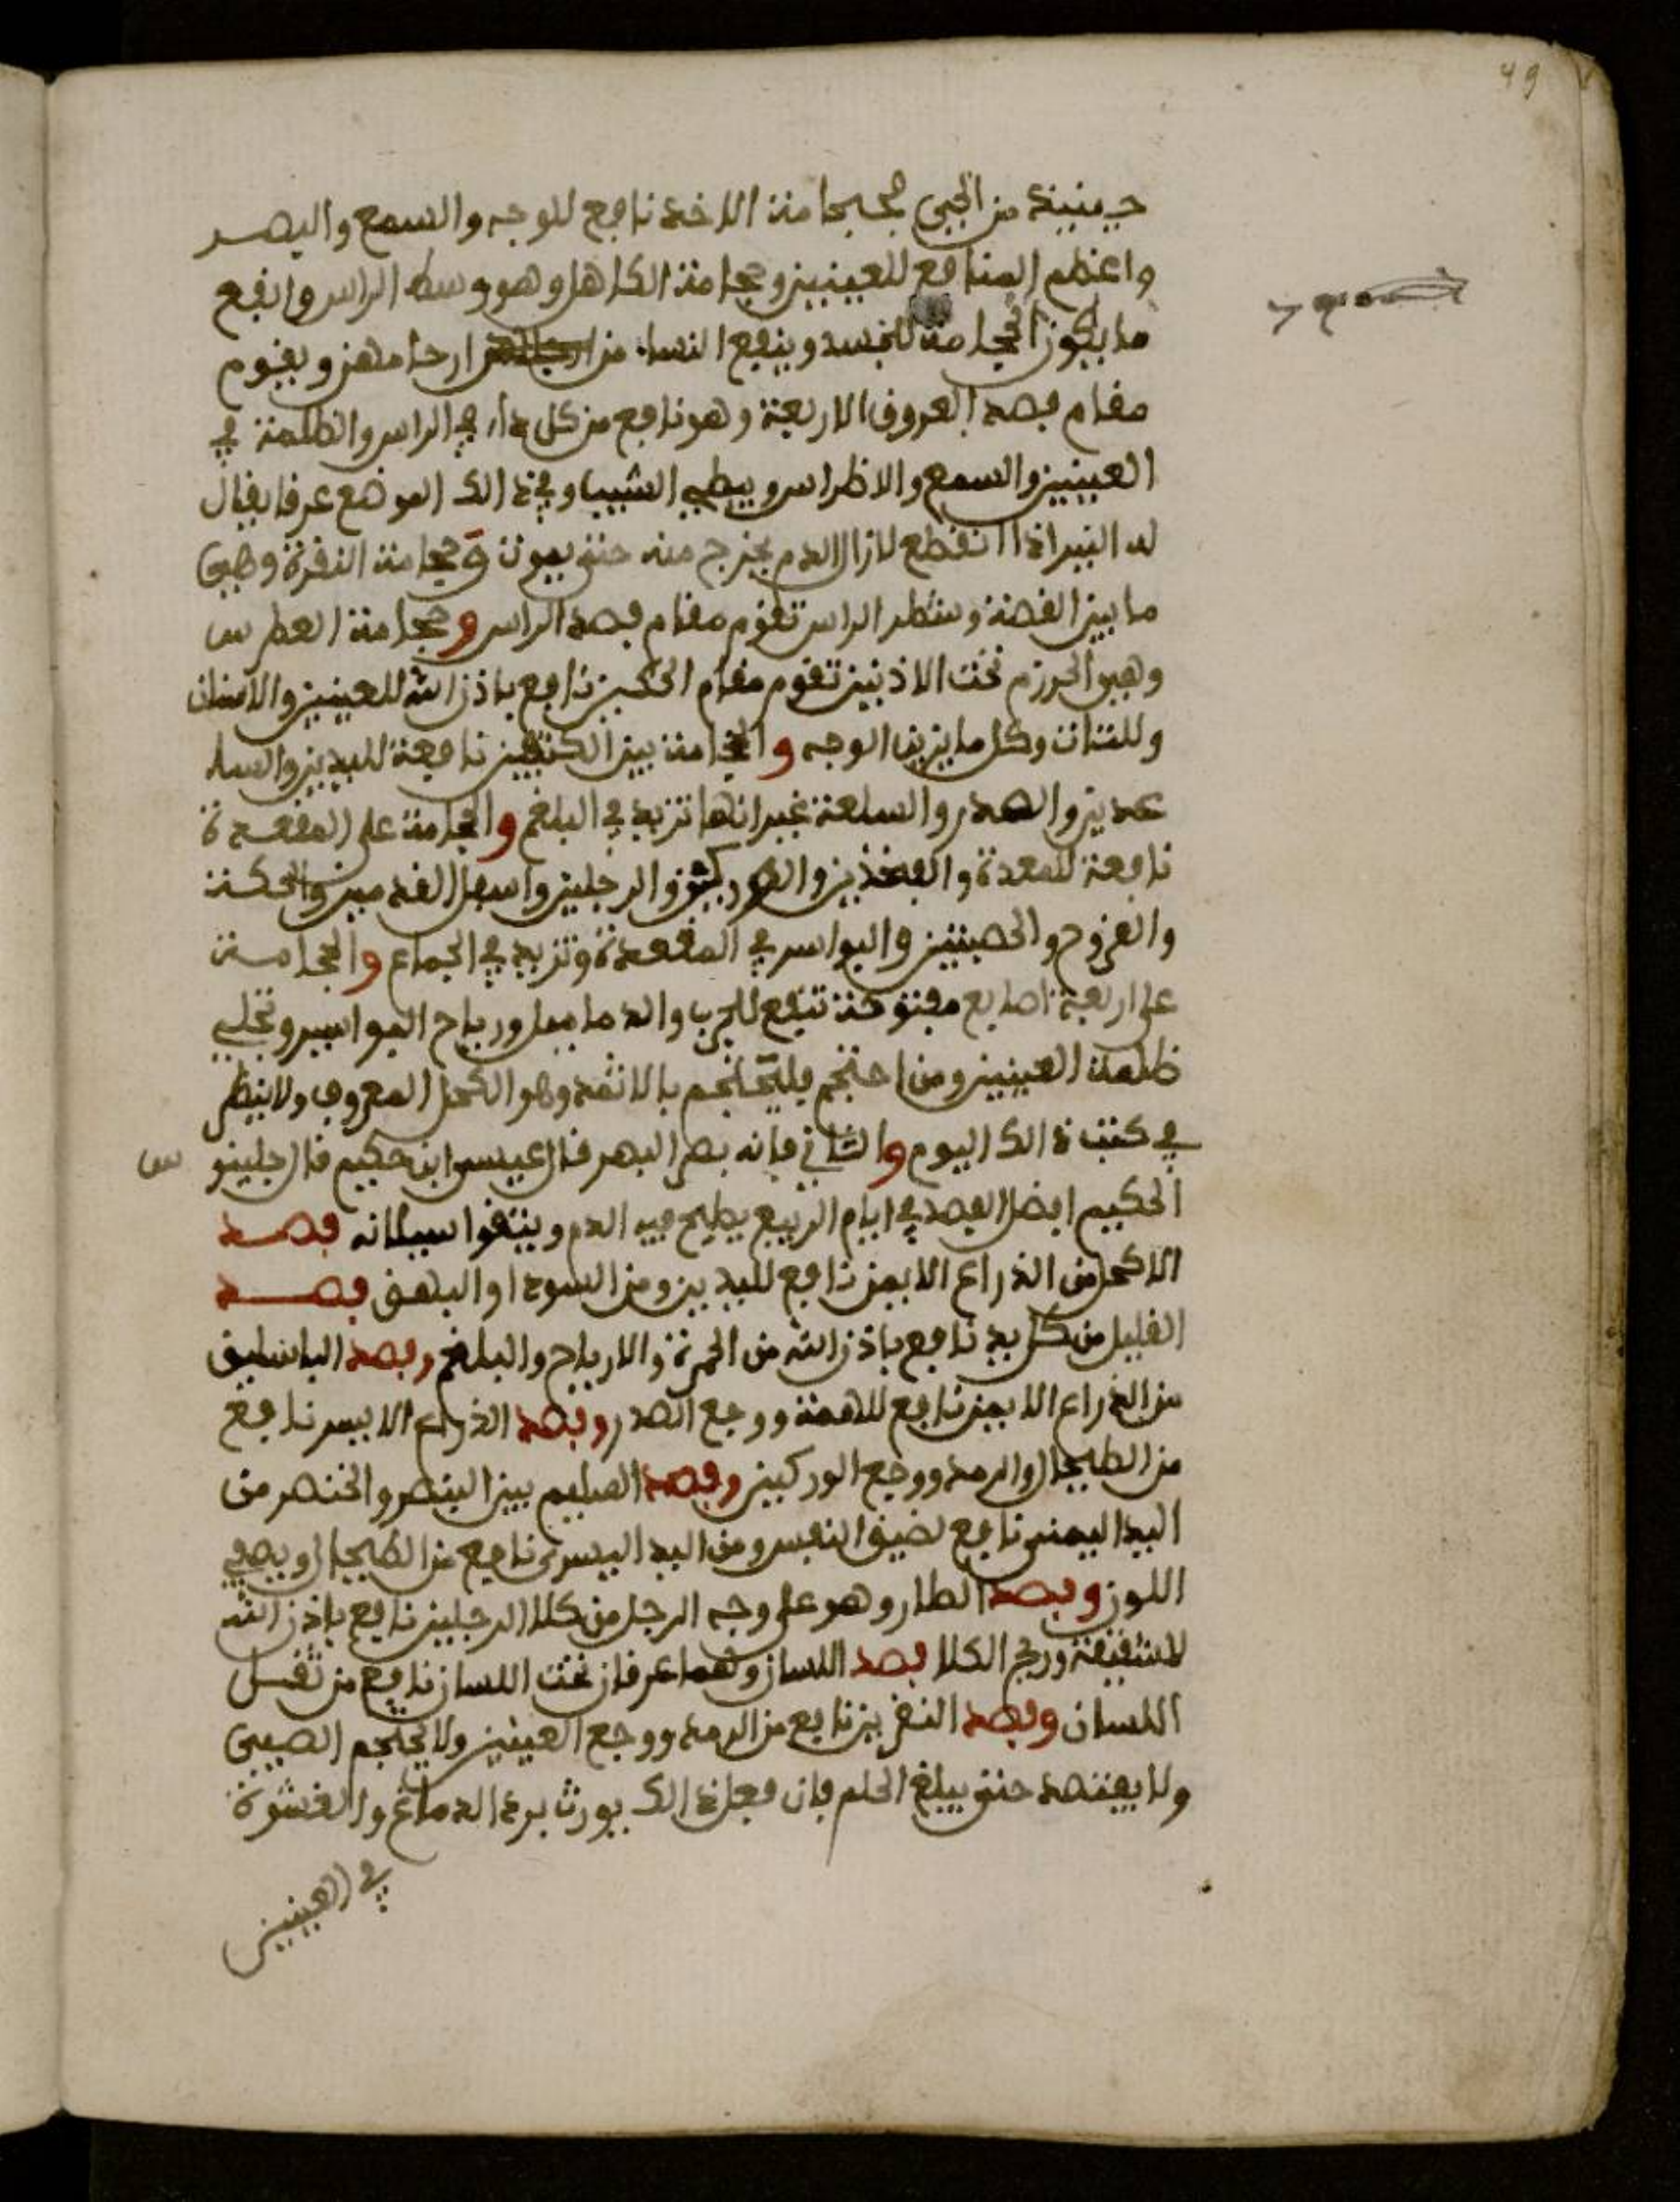 49
من الجبي فحجامة الاخد نافع للوجه والسمع والبصر
واعظم المنافع للعينين وحجامة الكاهل وهو وسط الراس وانفع
ما يكون الحجامة للجسد وينفع النسا من ارحامهن ويقوم
مقام فصد العروق الاربعة وهو نافع من كل داء في الراس والظلمة في
العينين والسمع والاظراس ويبطي الشيب وفي ذالك الموضع عرفا يقال
له النير اذا انقطع لازال الدم يخرج منه حتى يموت وحجامة النقرة وهي
ما بين القصة وشطر الراس تقوم مقام فصد الراس وحجامة العطرس
وهي الحرزم تحت الاذنين تقوم مقام نافع باذن الله للعينين والاسنان
وللثات وكل ما يزين الوجه والحجامة بين الكتفين نافعة لليدين والسا
عدين والصدر والسلعة غير انها تزيد في البلغم والحجامة على المقعدة
نافعة للمعدة والفخذين والوركين والرجلين واسفل القدمين والحكة
والقروح والخصيتين والبواسر في المقعدة وتزيد في الجماع والحجامة
على اربعة اصابع مفتوحة تنفع للجرب والدماميل ورياح البواسير وتجلي
ظلمة العينين ومن احتجم فليكتحل بالاثمد وهو الكحل المعروف ولا ينظر
في كتب ذالك اليوم والثاني فانه يضر البصر قال عيسى ابن حكيم قال جلينو س
الحكيم افضل الفصد في ايام الربيع يطيح فيه الدم وينتقوا سيلانه فصد
الاكحل من الذراع الايمن نافع لليدين ومن السودا والبهق فصد
القليل من كل يد نافع باذن الله من الحمرة والارياح والبلغم وفصد الباسليق
من الذراع الايمن نافع للاهمة ووجع الصدر وفصد الذراع الايسر نافع
من الطيحال والرمد ووجع الوركين وفصد الصليم بين البنصر والخنصر من
اليد اليمنى نافع لضيق النفس ومن اليد اليسرى نافع من الطيحال ويصفي
اللون وفصد الطار وهو على وجه الرجل من كلا الرجلين نافع باذن الله
لاشقيقة وريح الكلا فصد اللسان وهما عرقان تحت اللسان نافع من ثقل
اللسان وفصد النقرين نافع من الرمد ووجع العينين ولا يحتجم الصبي
ولا يفتصد حتى يبلغ الحلم فان فعل ذالك يورث برد الدماغ والغشوة
في العينين